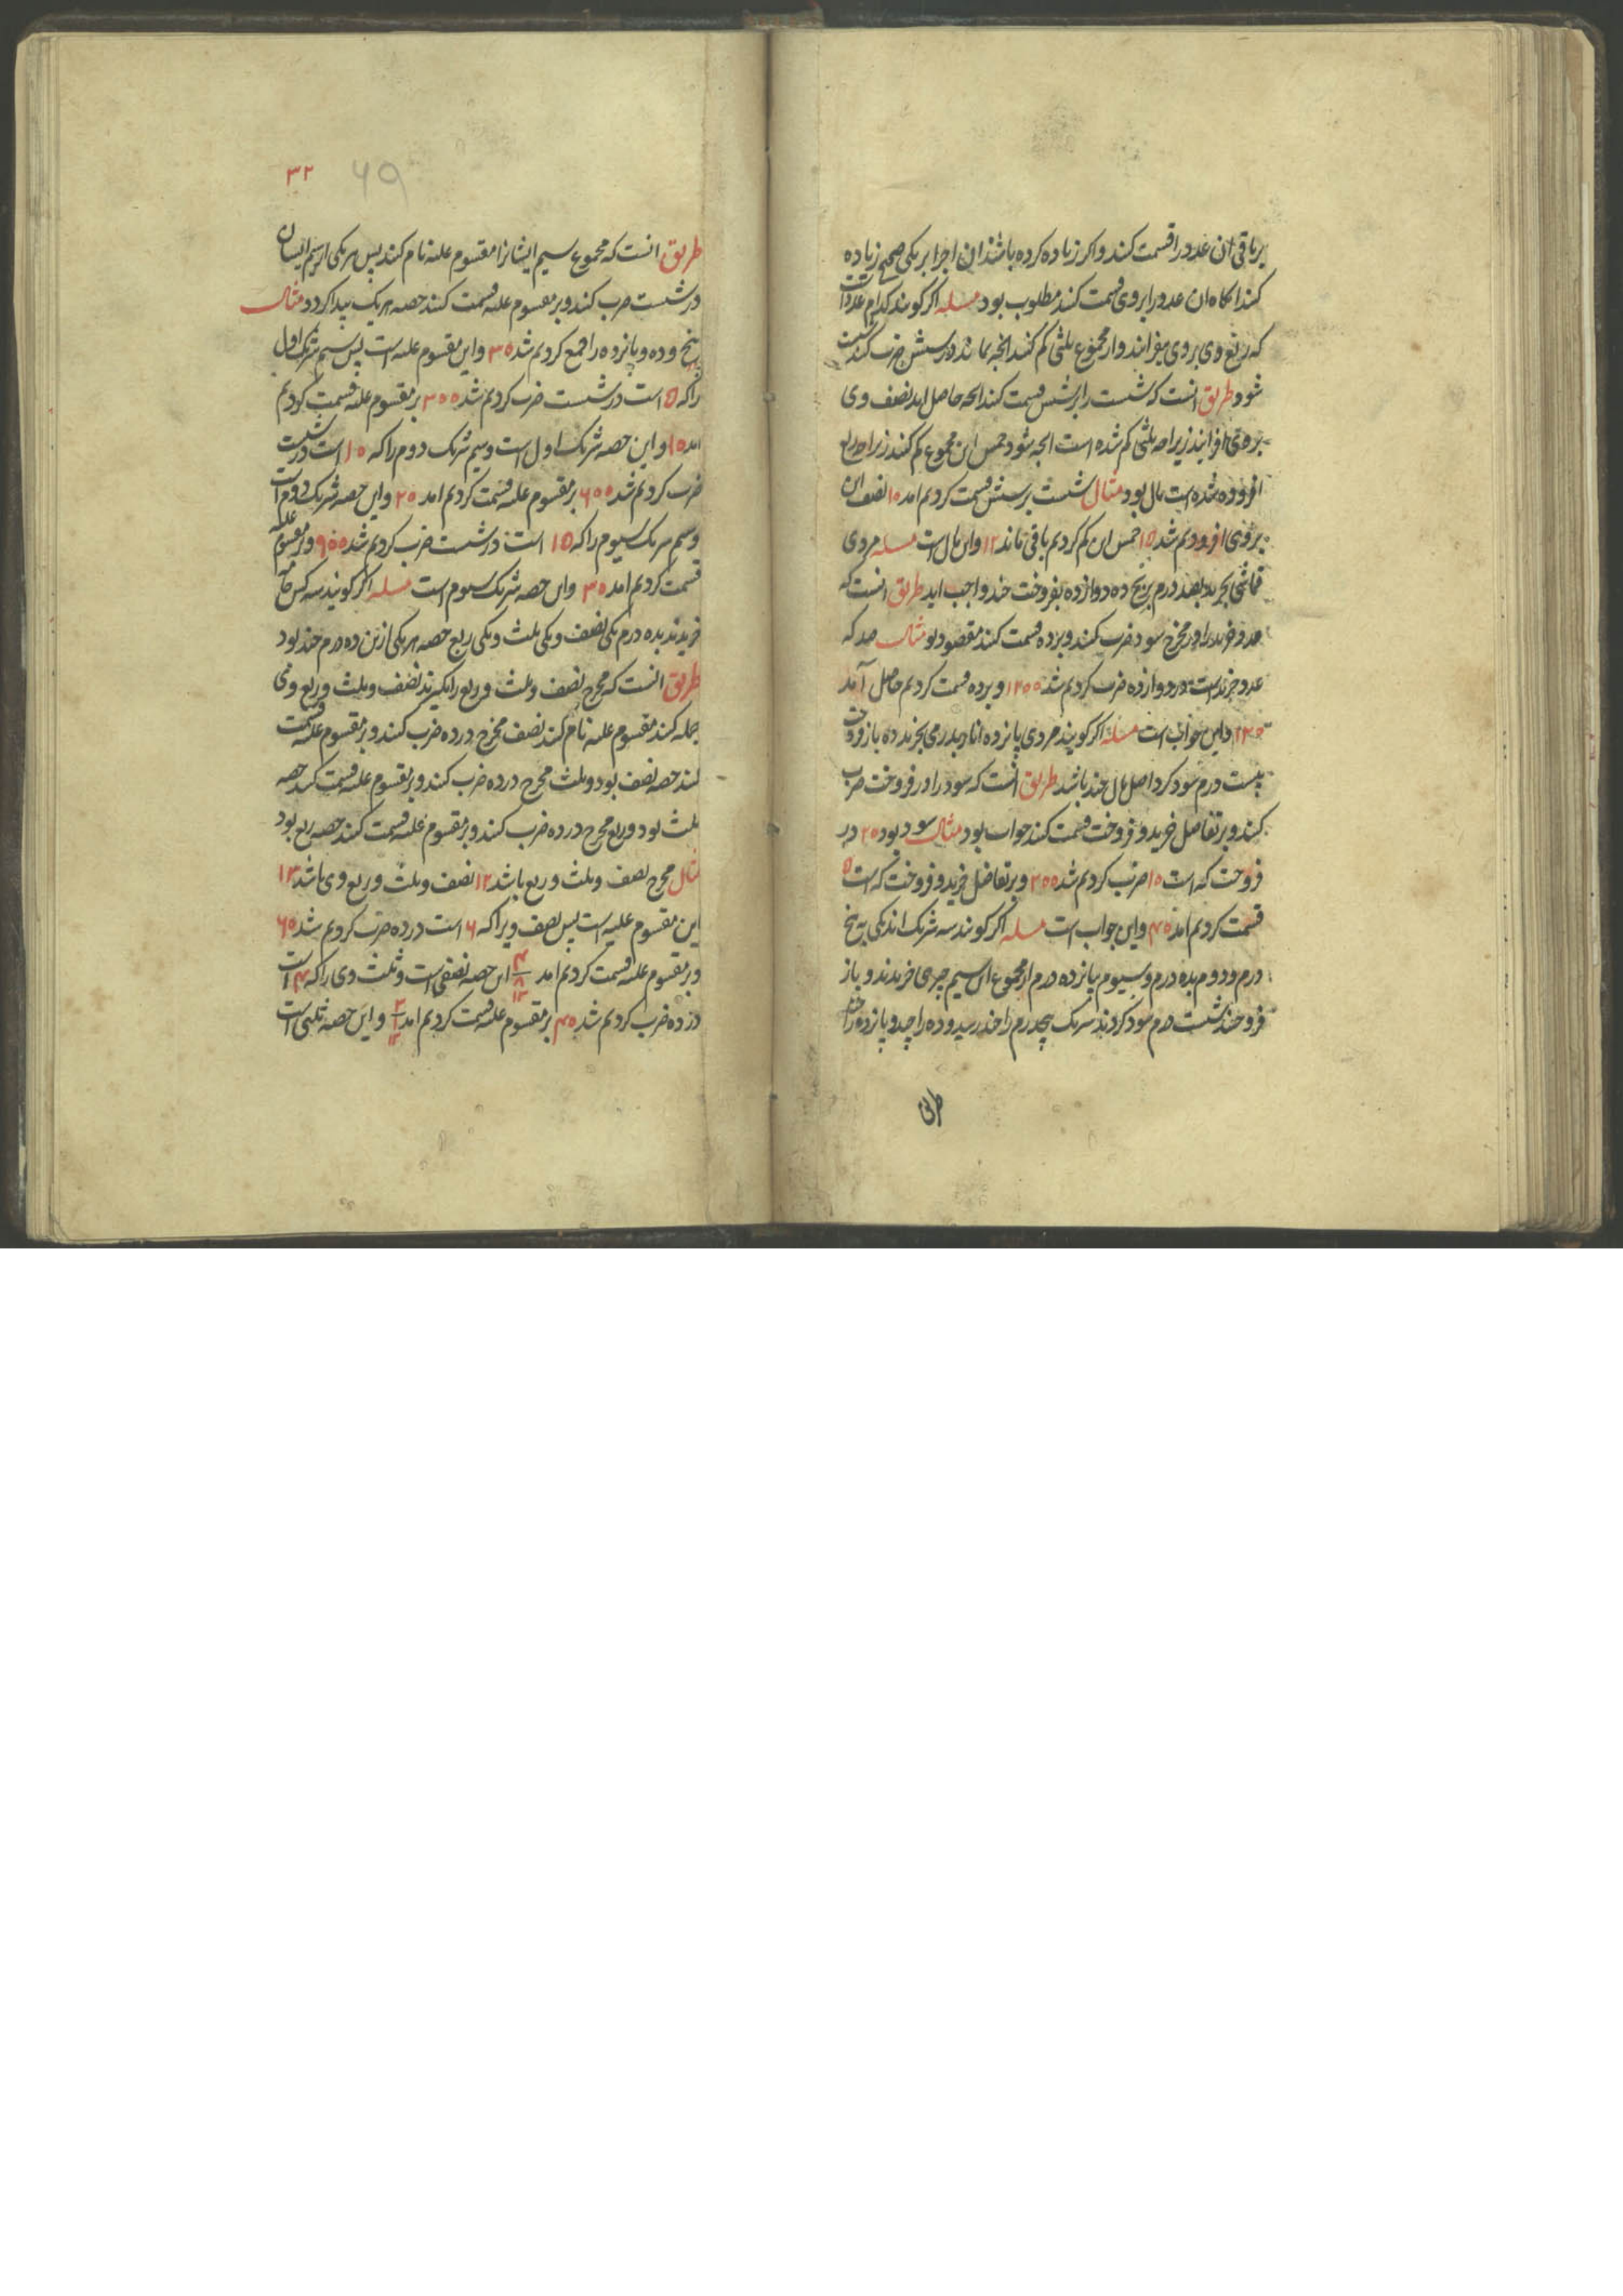 برباقی ان عدد را قسمت کنند و اکر زیاده کرده باشند ان اجزا بر یکی صحیح زیاده
کنند انکاه ان عدد را بر وی قسمت کنند مطلوب بود مسله اکر کویند کدام عدد است
که ربع وی بر وی بیفزایند و از مجموع ثلثی کم کنند انچه بماند در شش ضرب کنند شصت
شود طریق انست که شصت را بر شش قسمت کنند انچه حاصل اید نصف وی
بر وی افزایند زیرا که ثلثی کم شده است انچه شود خمس این مجموع کم کنند زیرا که ربع
افزوده شده است مال بود مثال شصت بر شش قسمت کردیم امد ۱۰ نصف ان
بر وی افزودیم شد ۱۵ خمس ان کم کردیم باقی ماند ۱۲ و این مال است مسله مردی
قماشی بخرید بصد درم بربح ده دوازده بفروخت چند واجب اید طریق انست که
عدد خرید را در مخرج سود ضرب کنند و بر ده قسمت کنند مقصود بود مثال صد که
عدد خرید است در دوازده ضرب کردیم شد ۱۲۰۰ و بر ده قسمت کردیم حاصل آمد
۱۲۰ و این جواب است مسله اکر کویند مردی پانزده انار بدرمی بخرید ده باز فروخت
بیست درم سود کرد اصل مال چند باشد طریق انست که سود را در فروخت ضرب
کنند و بر تفاضل خرید و فروخت قسمت کنند جواب بود مثال سود بود ۲۰ در
فروخت که است ۱۰ ضرب کردیم شد ۲۰۰ و بر تفاضل خرید و فروخت که است ۵
قسمت کردیم امد ۴۰ و این جواب است مسله اکر کویند سه شریک اند یکی به پنج
درم و دوم بده درم و سیوم پانزده درم از مجموع این سیم چیزی خریدند و باز
فروختند شصت درم سود کردند شریک پنجدرم را چند رسید و ده را چند و پانزده را چند
طریق
۳۲
۶۹
طریق انست که مجموع سیم ایشانرا مقسوم علیه نام کنند پس هر یکی از سیم ایشان
در شصت ضرب کنند و بر مقسوم علیه قسمت کنند حصه هر یک پیدا کردد مثال
پنج و ده و پانزده را جمع کردیم شد ۳۰ و این مقسوم علیه است پس سیم شریک اول
را که ۵ است در شصت ضرب کردیم شد ۳۰۰ بر مقسوم علیه قسمت کردیم
امد ۱۰ و این حصه شریک اول است و سیم شریک دوم را که ۱۰ است در شصت
ضرب کردیم شد ۶۰۰ بر مقسوم علیه قسمت کردیم امد ۲۰ و این حصه شریک دوم است
و سیم شریک سیوم را که ۱۵ است در شصت ضرب کردیم شد ۹۰۰ و بر مقسوم علیه
قسمت کردیم امد ۳۰ و این حصه شریک سیوم است مسله اکر کویند سه کس
خریدند بده درم یکی نصف و یکی ثلث و یکی ربع حصه هر یکی ازین ده درم چند بود
طریق انست که مخرج نصف و ثلث و ربع را بکیرند نصف و ثلث و ربع وی
جمله کنند مقسوم علیه نام کنند نصف مخرج در ده ضرب کنند و بر مقسوم علیه قسمت
کنند حصه نصف بود و ثلث مخرج در ده ضرب کنند و بر مقسوم علیه قسمت کنند حصه
ثلث بود و ربع مخرج در ده ضرب کنند و بر مقسوم علیه قسمت کنند حصه ربع بود
مثال مخرج نصف و ثلث و ربع باشد ۱۲ نصف و ثلث و ربع وی باشد ۱۳
این مقسوم علیه است پس نصف ویرا که ۶ است در ده ضرب کردیم شد ۶۰
و بر مقسوم علیه قسمت کردیم امد ۴ ۸ ۱۳ این حصه نصفی است و ثلث وی را که ۴ است
در ده ضرب کردیم شد ۴۰ بر مقسوم علیه قسمت کردیم امد ۳ ۱ ۱۳ و این حصه ثلثی است